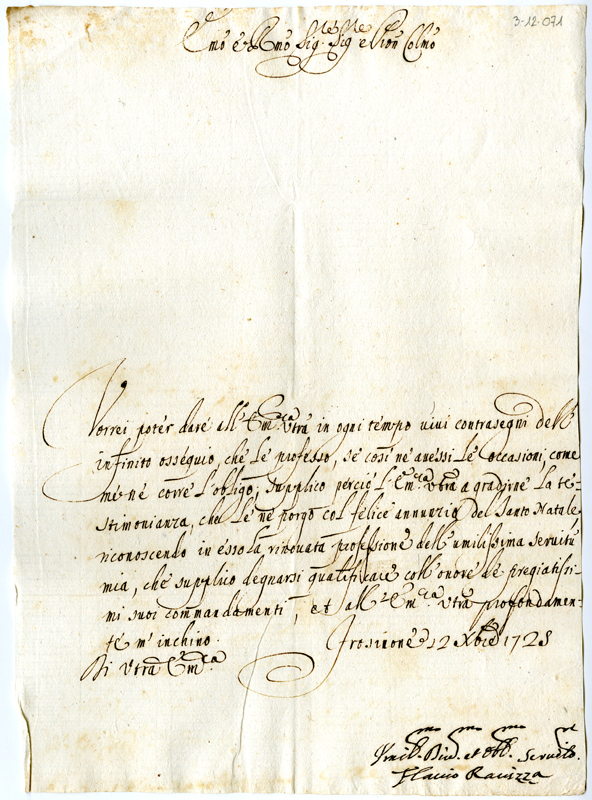 3-12-071
Emo e Rmo Sig. Sig.re e Pron Colmo
Vorrei poter dare all'Em.za Vtra in ogni tempo vivi contrasegni dell'
infinito ossequio, che le professo, se così ne avessi le occasioni, come
me ne corre l'obligo; supplico perciò l'Em.za Vtra a gradire la te=
stimonianza, che le ne porgo col felice annunzio del Santo Natale,
riconoscendo in esso la rinovata professione dell'umilissima servitù
mia, che supplico degnarsi qualificare coll'onore de pregiatissi=
mi suoi commandamenti, et all'Em.za Vtra profondamen=
te m'inchino.
Frosinone 12 Xbre 1728
Di Vtra Em.za
Umil.mo Div.mo et Obb.mo Servit.re
Flavio Ravizza